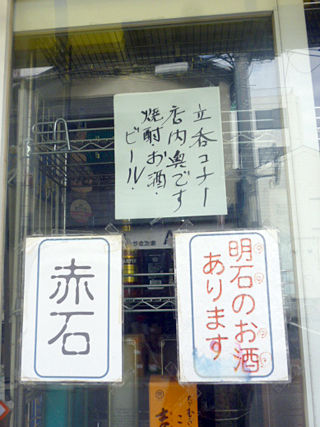 立呑コーナー
店内奥です
焼酎お酒・
ビール・
明石のお酒
あります
赤石